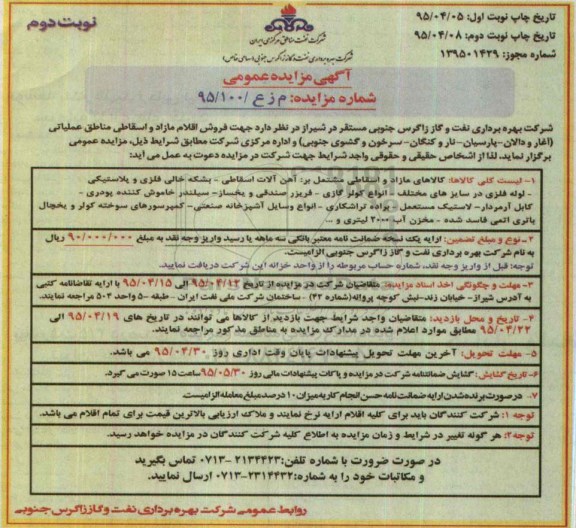 تاریخ چاپ نوبت اول: ۹۵/۰۴/۰۵
تاریخ چاپ نوبت دوم: ۹۵/۰۴/۰۸
شماره مجوز: ۱۳۹۵۰۱۴۲۹
نوبت دوم
شرکت نفت مناطق مرکزی ایران
شرکت بهره برداری نفت و گاز زاگرس جنوبی (سهامی خاص)
آگهی مزایده عمومی
شماره مزایده: م ز ع /۹۵/۱۰۰
شرکت بهره برداری نفت و گاز زاگرس جنوبی مستقر در شیراز در نظر دارد جهت فروش اقلام مازاد و اسقاطی مناطق عملیاتی
(آغار و دالان-پارسیان-نار و کنگان-سرخون و گشوی جنوبی) و اداره مرکزی شرکت مطابق شرایط ذیل، مزایده عمومی
برگزار نماید، لذا از اشخاص حقیقی و حقوقی واجد شرایط جهت شرکت در مزایده دعوت به عمل می آید:
۱- لیست کلی کالاها: کالاهای مازاد و اسقاطی مشتمل بر: آهن آلات اسقاطی - بشکه خالی فلزی و پلاستیکی
- لوله فلزی در سایز های مختلف - انواع کولر گازی - فریزر صندقی و یخساز- سیلندر خاموش کننده پودری -
کابل آرمردار- لاستیک مستعمل - براده تراشکاری - انواع وسایل آشپزخانه صنعتی- کمپرسورهای سوخته کولر و یخچال
باتری اتمی فاسد شده - مخزن آب ۲۰۰۰ لیتری و ...
۲- نوع و مبلغ تضمین: ارایه یک نسخه ضمانت نامه معتبر بانکی سه ماهه یا رسید واریز وجه نقد به مبلغ ۹۰/۰۰۰/۰۰۰ ریال
به نام شرکت بهره برداری نفت و گاز زاگرس جنوبی الزامیست.
توجه: قبل از واریز وجه نقد، شماره حساب مربوطه را از واحد خزانه این شرکت دریافت نمایید.
۳- مهلت و چگونگی اخذ اسناد مزایده: متقاضیان شرکت در مزایده از تاریخ ۹۵/۰۴/۱۲ الی ۹۵/۰۴/۱۵ با ارایه تقاضانامه کتبی
به آدرس شیراز- خیابان زند-نبش کوچه پروانه(شماره ۴۲) - ساختمان شرکت ملی نفت ایران - طبقه ۵- واحد ۵۰۴ مراجعه نمایند.
۴- تاریخ و محل بازدید: متقاضیان واجد شرایط جهت بازدید از کالاها می توانند در تاریخ های ۹۵/۰۴/۱۹ الی
۹۵/۰۴/۲۲ مطابق موارد اعلام شده در مدارک مزایده به مناطق مذکور مراجعه نمایند.
۵- مهلت تحویل: آخرین مهلت تحویل پیشنهادات پایان وقت اداری روز ۹۵/۰۴/۳۰ می باشد.
۶- تاریخ گشایش: گشایش ضمانتنامه شرکت در مزایده و پاکات پیشنهادات مالی روز ۹۵/۰۵/۳۰ ساعت ۱۵ صورت می گیرد.
۷- در صورت برنده شدن ارایه ضمانت نامه حسن انجام کار به میزان ۱۰ درصد مبلغ معامله الزامیست.
توجه ۱: شرکت کنندگان باید برای کلیه اقلام ارایه نرخ نمایند و ملاک ارزیابی بالاترین قیمت برای تمام اقلام می باشد.
توجه۲: هر گونه تغییر در شرایط و زمان مزایده به اطلاع کلیه شرکت کنندگان در مزایده خواهد رسید.
در صورت ضرورت با شماره تلفن:۲۱۳۴۴۲۳-۰۷۱۳ تماس بگیرید
و مکاتبات خود را به شماره:۲۳۱۴۴۳۲-۰۷۱۳ ارسال نمایید.
روابط عمومی شرکت بهره برداری نفت و گاز زاگرس جنوبی